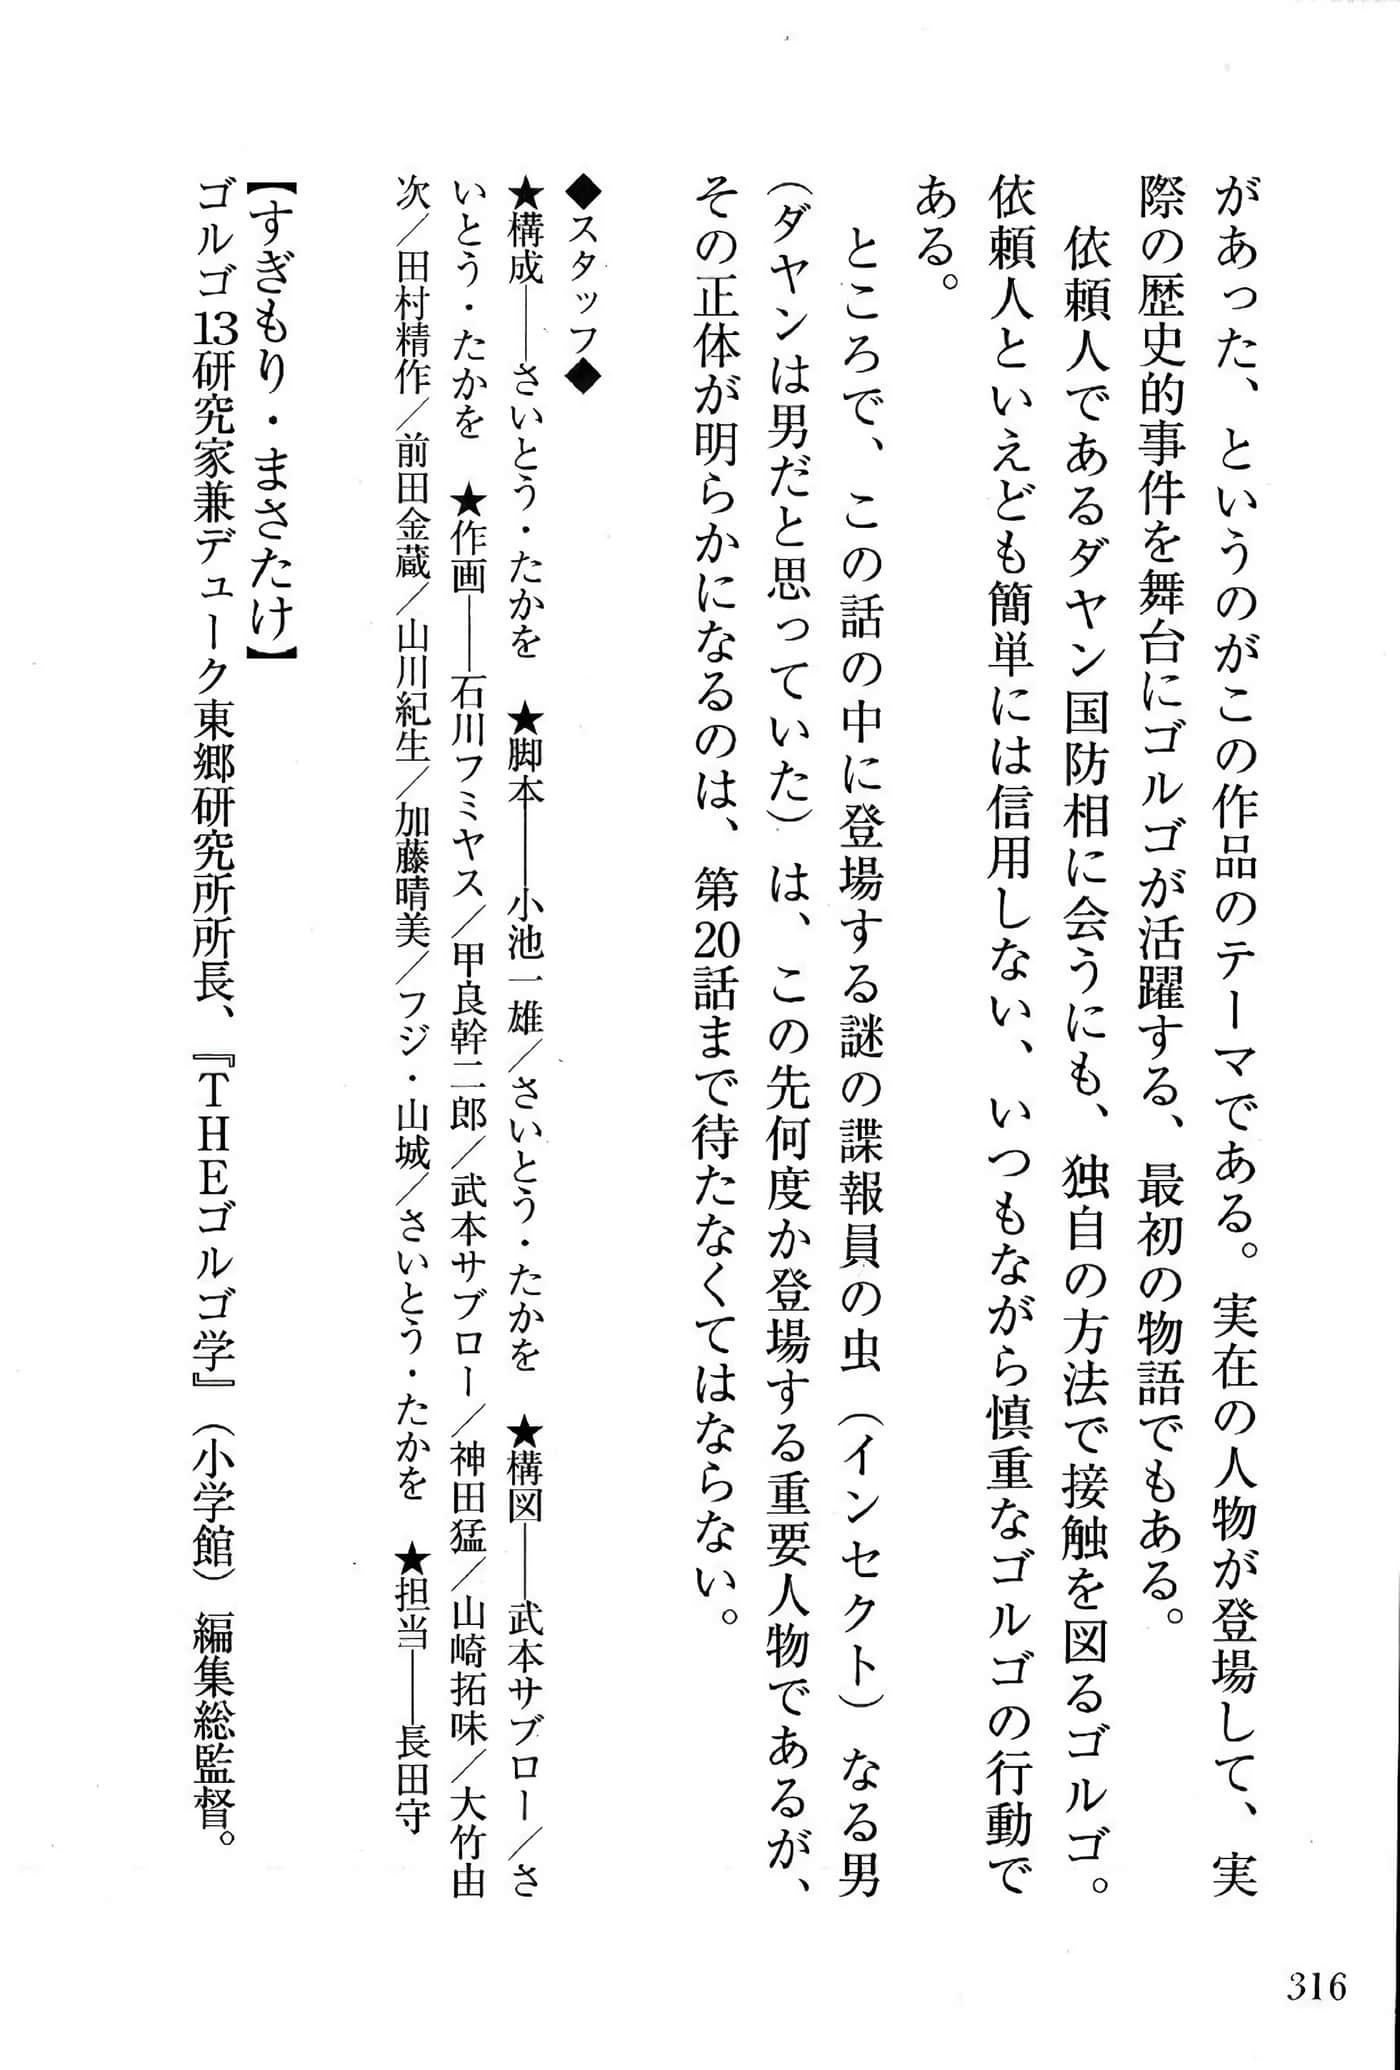 があった、というのがこの作品のテーマである。実在の人物が登場して、実
際の歴史的事件を舞台にゴルゴが活躍する、最初の物語でもある。
　依頼人であるダヤン国防相に会うにも、独自の方法で接触を図るゴルゴ。
依頼人といえども簡単には信用しない、いつもながら慎重なゴルゴの行動で
ある。
　ところで、この話の中に登場する謎の諜報員の虫（インセクト）なる男
（ダヤンは男だと思っていた）は、この先何度か登場する重要人物であるが、
その正体が明らかになるのは、第20話まで待たなくてはならない。
◆スタッフ◆
★構成――さいとう・たかを　★脚本――小池一雄／さいとう・たかを　★構図――武本サブロー／さ
いとう・たかを　★作画――石川フミヤス／甲良幹二郎／武本サブロー／神田猛／山崎拓味／大竹由
次／田村精作／前田金蔵／山川紀生／加藤晴美／フジ・山城／さいとう・たかを　★担当――長田守
【すぎもり・まさたけ】
ゴルゴ13研究家兼デューク東郷研究所所長、『THEゴルゴ学』（小学館）編集総監督。
316